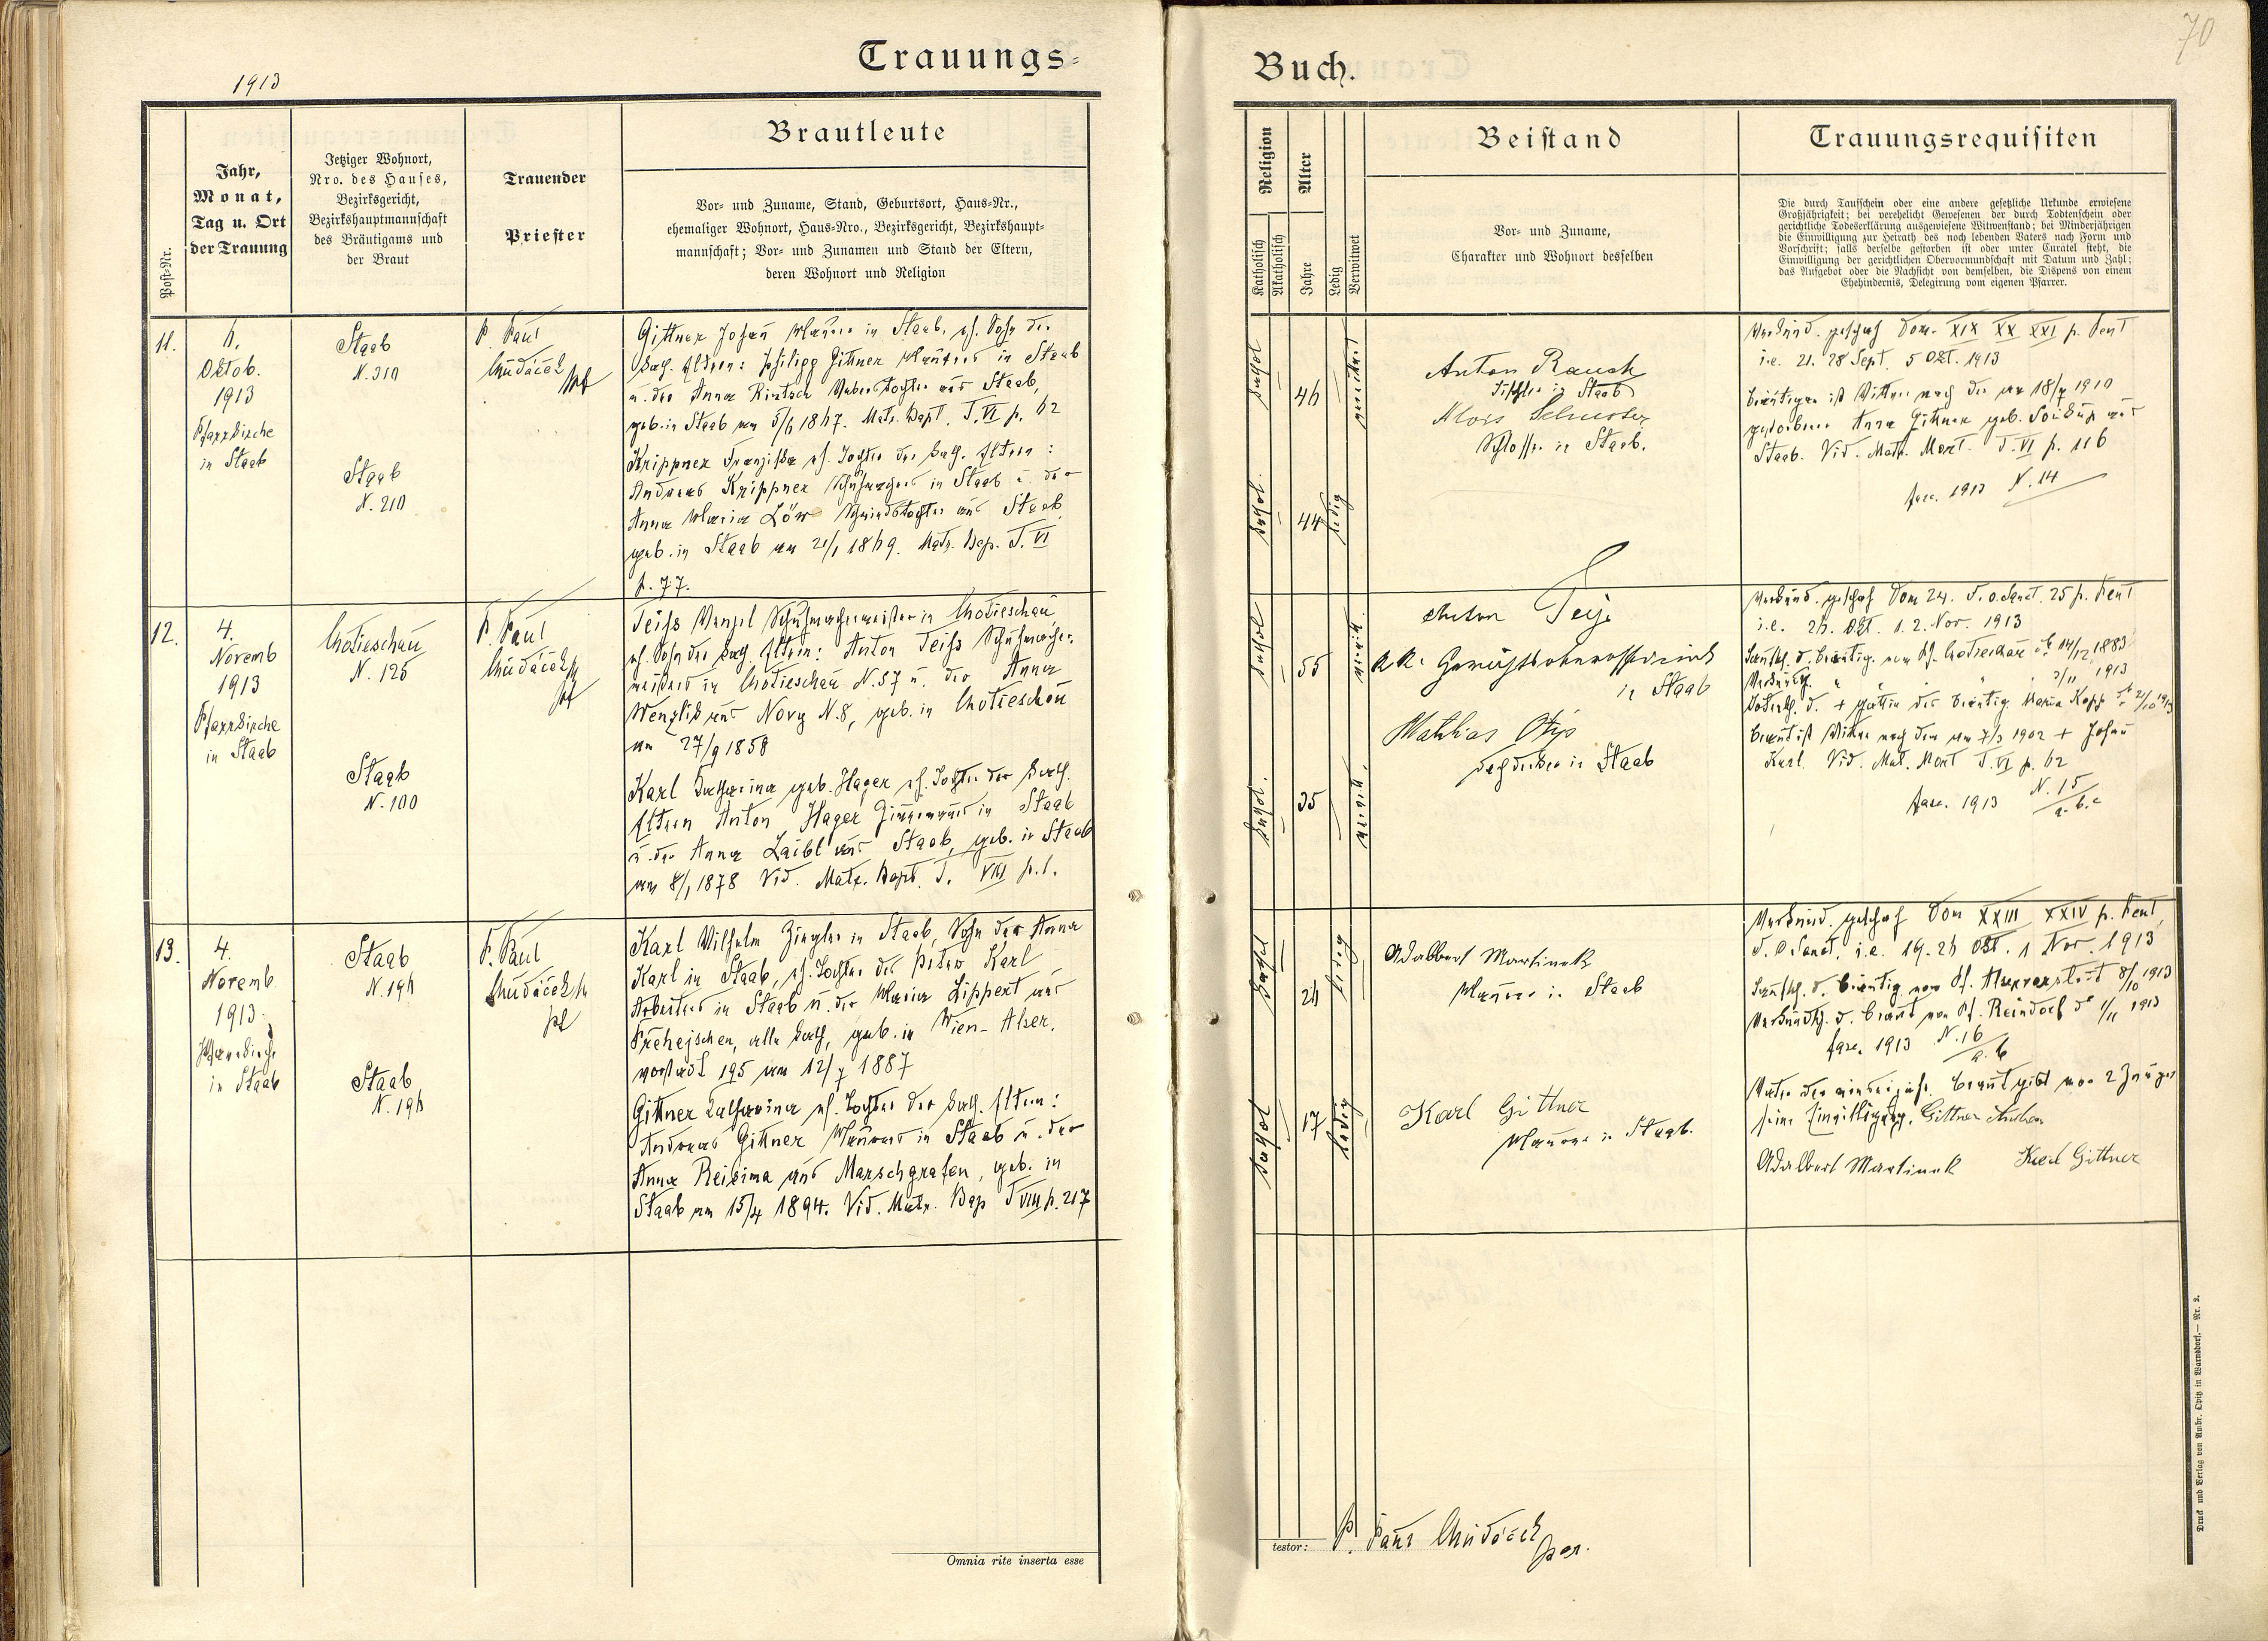 70
1913
Trauungs-
Buch.
Post-Nr.
Jahr,
Monat,
Tag u. Ort
der Trauung
Jetziger Wohnort,
Nro. des Hauses,
Bezirksgericht,
Bezirkshauptmannschaft
des Bräutigams und
der Braut
Trauender
Priester
Brautleute
Vor- und Zuname, Stand, Geburtsort, Haus-Nr.,
ehemaliger Wohnort, Haus-Nro., Bezirksgericht, Bezirkshaupt-
mannschaft; Vor- und Zunamen und Stand der Eltern,
deren Wohnort und Religion
Religion
Katholisch
Akatholisch
Alter
Jahre
Ledig
Verwitwet
Beistand
Vor- und Zuname,
Charakter und Wohnort desselben
Trauungsrequisiten
Die durch Taufschein oder eine andere gesetzliche Urkunde erwiesene
Großjährigkeit; bei verehelicht Gewesenen der durch Todtenschein oder
gerichtliche Todeserklärung ausgewiesene Witwenstand; bei Minderjährigen
die Einwilligung zur Heirath des noch lebenden Vaters nach Form und
Vorschrift; falls derselbe gestorben ist oder unter Curatel steht, die
Einwilligung der gerichtlichen Obervormundschaft mit Datum und Zahl;
das Aufgebot oder die Nachsicht von demselben, die Dispens von einem
Ehehindernis, Delegirung vom eigenen Pfarrer.
11.
6.
Oktob.
1913
Pfarrkirche
in Staab
Staab
N. 310
Staab
N. 210
P. Paul
Chudáček
Gittner Johan Maurer in Staab, eh. Sohn der
kath. Eltern: Philipp Gittner Maurers in Staab
u. der Anna Rintsch Weberstochter aus Staab,
geb. in Staab am 5/6 1867. Matr. Bapt. T. VI p. 62
Krippner Franziska eh. Tochter der kath. Eltern:
Andreas Krippner Schuhmachers in Staab u. der
Anna Maria Löw Schmiedstochter aus Staab
geb. in Staab am 21/1 1869. Matr. Bap. T. VI
p. 77.
kathol
46
verwitwet
kathol.
44
ledig
Anton Rausch
Tischler in Staab
Alois Schuster
Schlosser in Staab.
Verkünd. geschah Dom. XIX XX XXI p. Pent
i.e. 21. 28 Sept. 5 Okt. 1913
Bräutigam ist Witwer nach der am 18/7 1910
gestorbenen Anna Gittner geb. Soukup aus
Staab. Vid. Matr. Mort. T. VI p. 116
fasc. 1913 N. 14
12.
4.
Novemb
1913
Pfarrkirche
in Staab
Chotieschau
N. 125
Staab
N. 100
P. Paul
Chudáček
Teiss Wenzl Schuhmachermeister in Chotieschau
eh. Sohn der kath Eltern: Anton Teiss Schuhmacher-
meisters in Chotieschau N. 57 u. der Anna
Wenzlik aus Nový N. 8, geb. in Chotieschau
am 27/9 1858
Karl Katharina geb. Hager eh. Tochter der kath.
Eltern Anton Hager Zimmermans in Staab
u. der Anna Laibl aus Staab, geb. in Staab
am 8/1 1878 Vid. Matr. Bapt. T. VIII p. 1.
kathol
55
verwitt.
kathol.
35
verwitt.
Anton
k.k.
in Staab
Mathias
Dachdecker in Staab
Verkünd. geschah Dom 24. F. o. Sanct. 25 p. Pent
i.e. 26. Okt. 1. 2. Nov. 1913
Taufsch. d. Bräutig. vom Pf. Chotieschau 14/12 1883
Verkündsch. " " " 2/11 1913
Totensch. d. + Gattin des Bräutig. Maria Kopp 21/10 1913
Braut ist Witwe nach dem am 7/3 1902 + Johan
Karl. Vid. Mat. Mort T. VI p. 62
fasc. 1913 N. 15
a. b. c
13.
4.
Novemb
1913
Pfarrkirche
in Staab
Staab
N. 196
Staab
N. 196
P. Paul
Chudáček
Karl Wilhelm Ziegler in Staab, Sohn der Anna
Karl in Staab, eh. Tochter des Peter Karl
Arbeiters in Staab u. der Maria Lippert aus
Přehejschen, alle kath, geb. in Wien-Alser-
vorstadt 195 am 12/7 1887
Gittner Katharina eh. Tochter der kath. Eltern:
Andreas Gittner Maurers in Staab u. der
Anna Reisima aus Marschgrafen, geb. in
Staab am 15/4 1894. Vid. Matr. Bap T VIII p. 217
kathol
26
ledig
kathol
17
ledig
Adalbert Martinek
Maurer in Staab
Karl Gittner
Maurer in Staab.
Verkünd. geschah Dom XXIII XXIV p. Pent,
F. O. Sanct. i.e. 19. 26 Okt. 1 Nov. 1913
Taufsch. d. Bräutig vom Pf. Alservorstadt 8/10 1913
Verkündsch. d. Braut vom Pf. Reindorf 1/11 1913
fasc. 1913 N. 16
a. b
Vater der minderjähr. Braut gibt vor 2 Zeugen
seine Einwilligung. Gittner Andreas
Adalbert Martinek Karl Gittner
Omnia rite inserta esse
testor: P. Paul Chudáček
par.
Druck und Verlag von Ambr. Opitz in Warnsdorf.— Nr. 2.